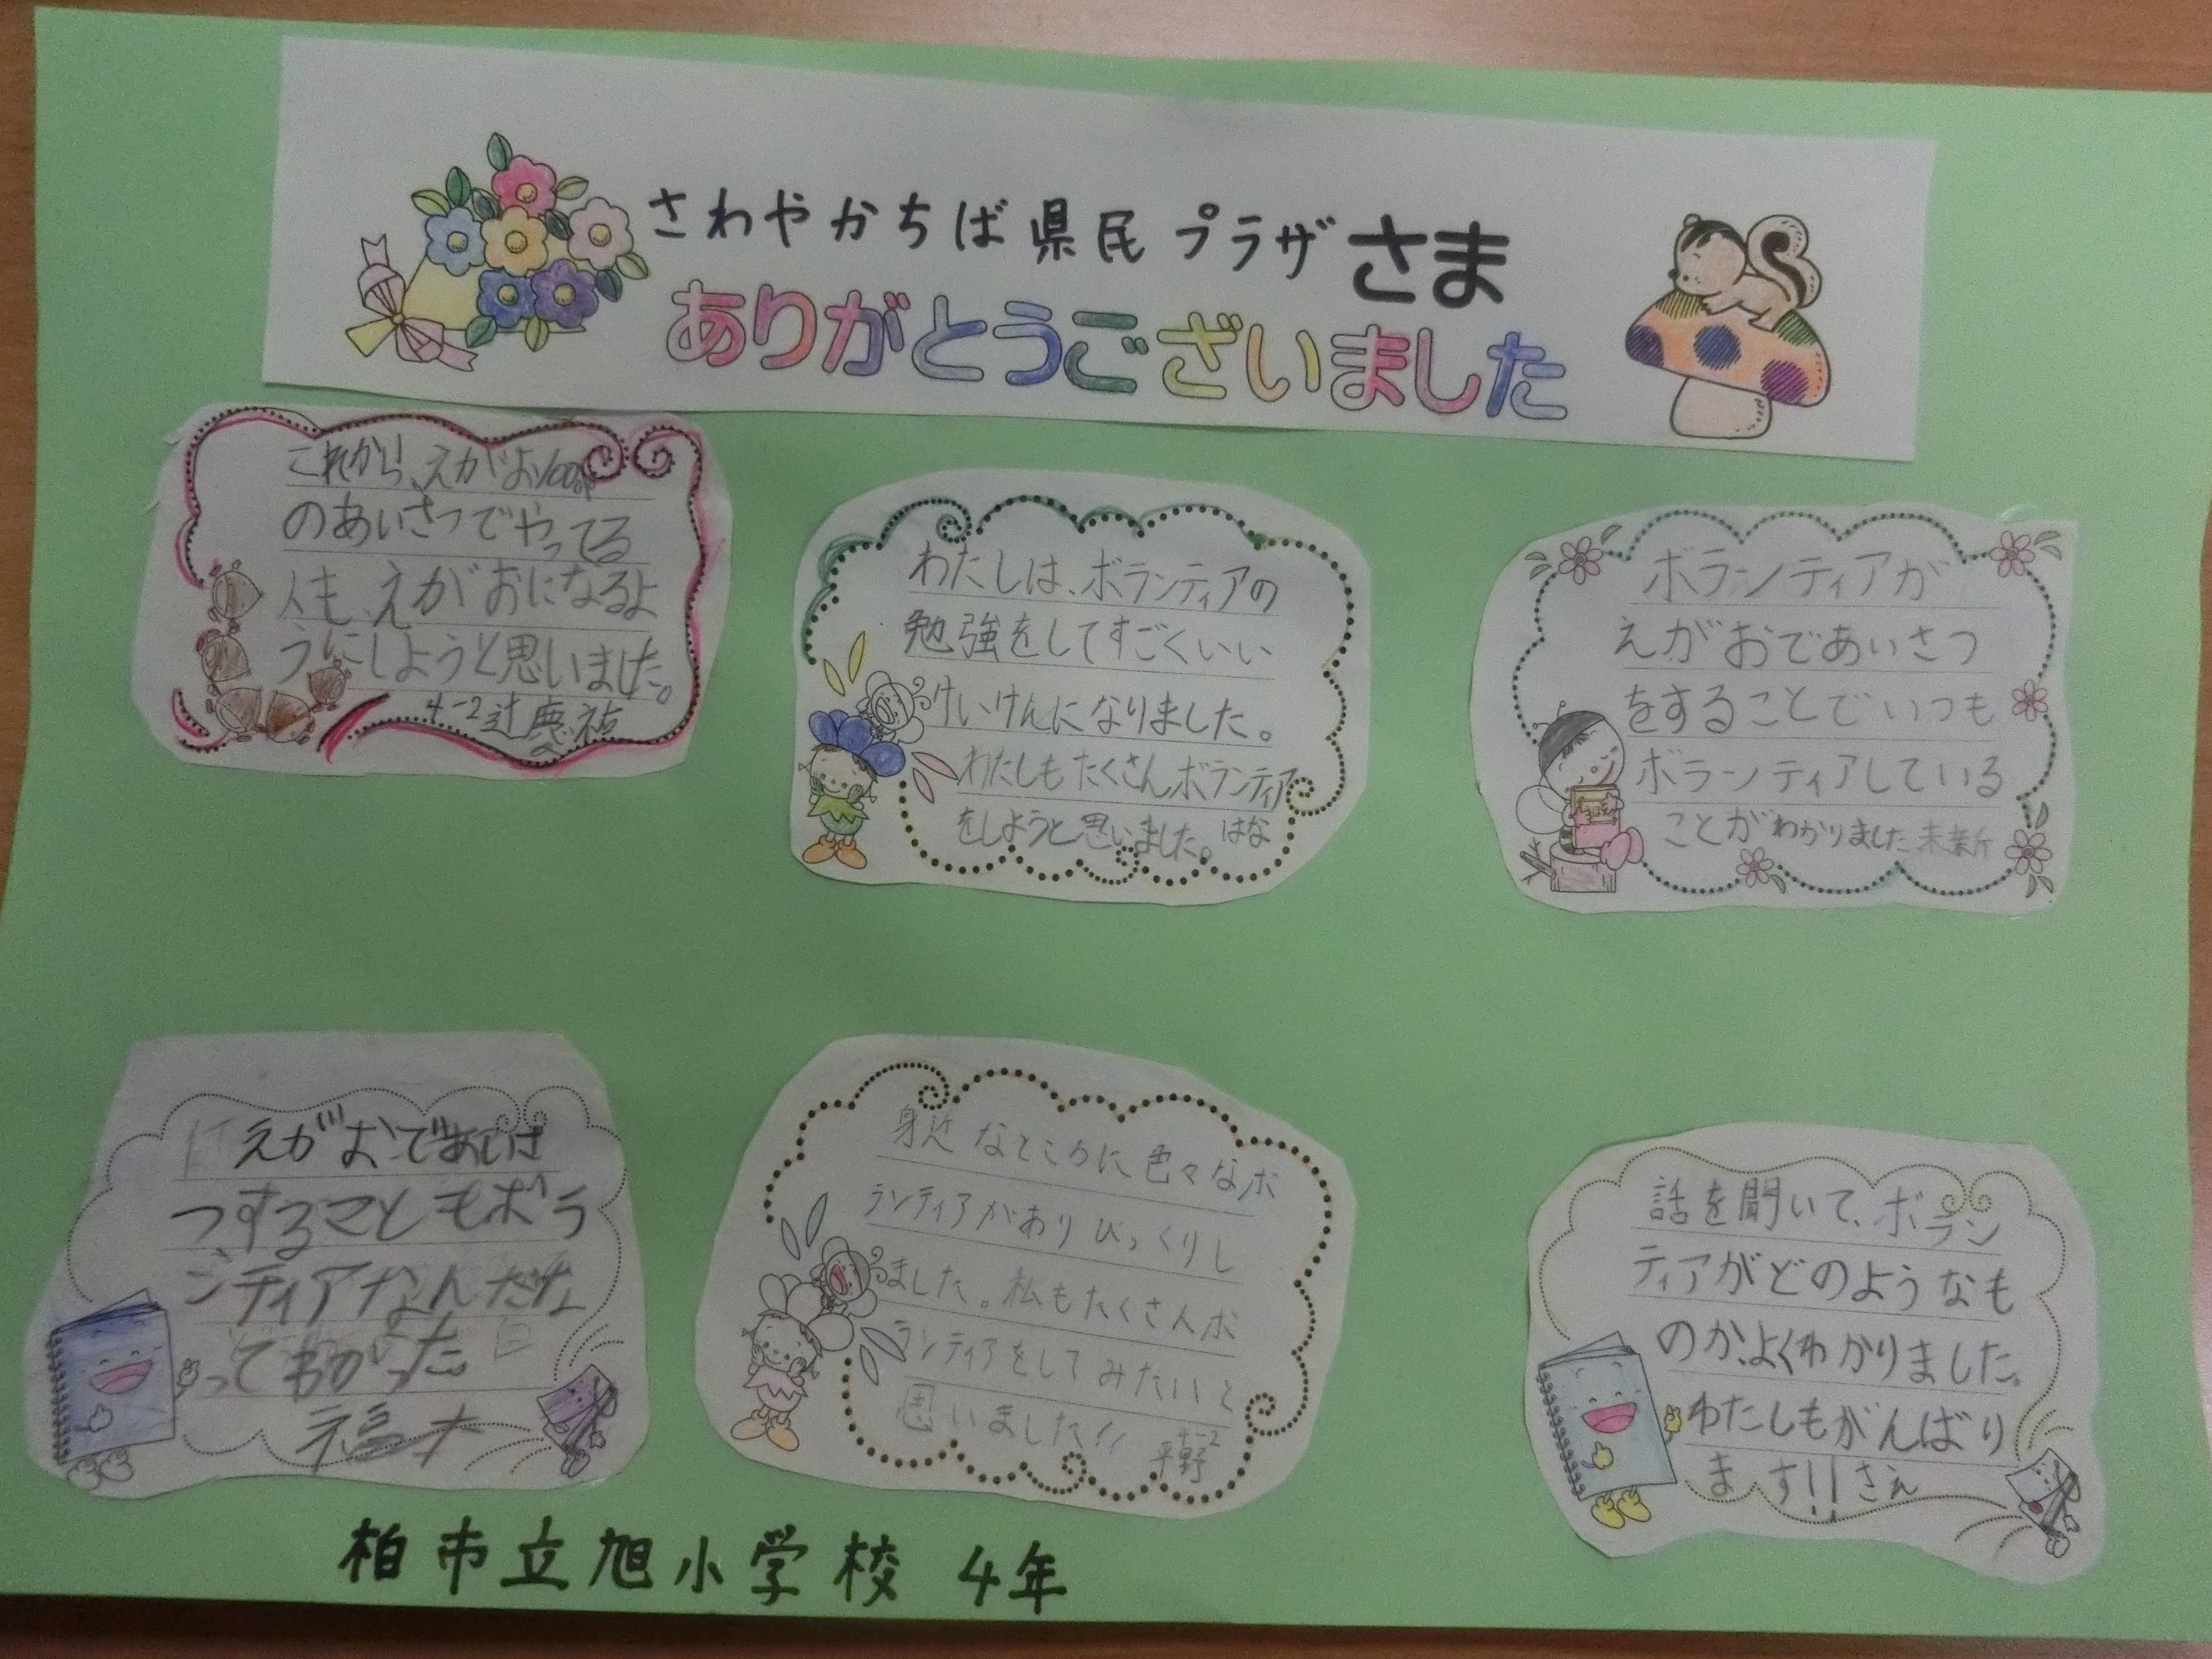 さわやかちば県民プラザさま
ありがとうございました
これから、えがお100%
のあいさつでやってる
人も、えがおになるよ
うにしようと思いました。
4-2辻
わたしは、ボランティアの
勉強をしてすごくいい
けいけんになりました。
わたしもたくさんボランティア
をしようと思いました。はな
ボランティアが
えがおであいさつ
をすることでいつも
ボランティアしている
ことがわかりました
えがおであいさ
つすることもボラ
ンティアなんだな
ってわかった
身近なところに色々なボ
ランティアがありびっくりし
ました。私もたくさんボ
ランティアをしてみたいと
思いました!!
4-2
平野
話を聞いて、ボラン
ティアがどのようなも
のか、よくわかりました。
わたしもがんばり
ます!!さえ
柏市立旭小学校 4年